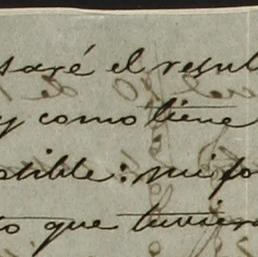 saré el resul
y como tiene
tible: mi fo
to que tuvier